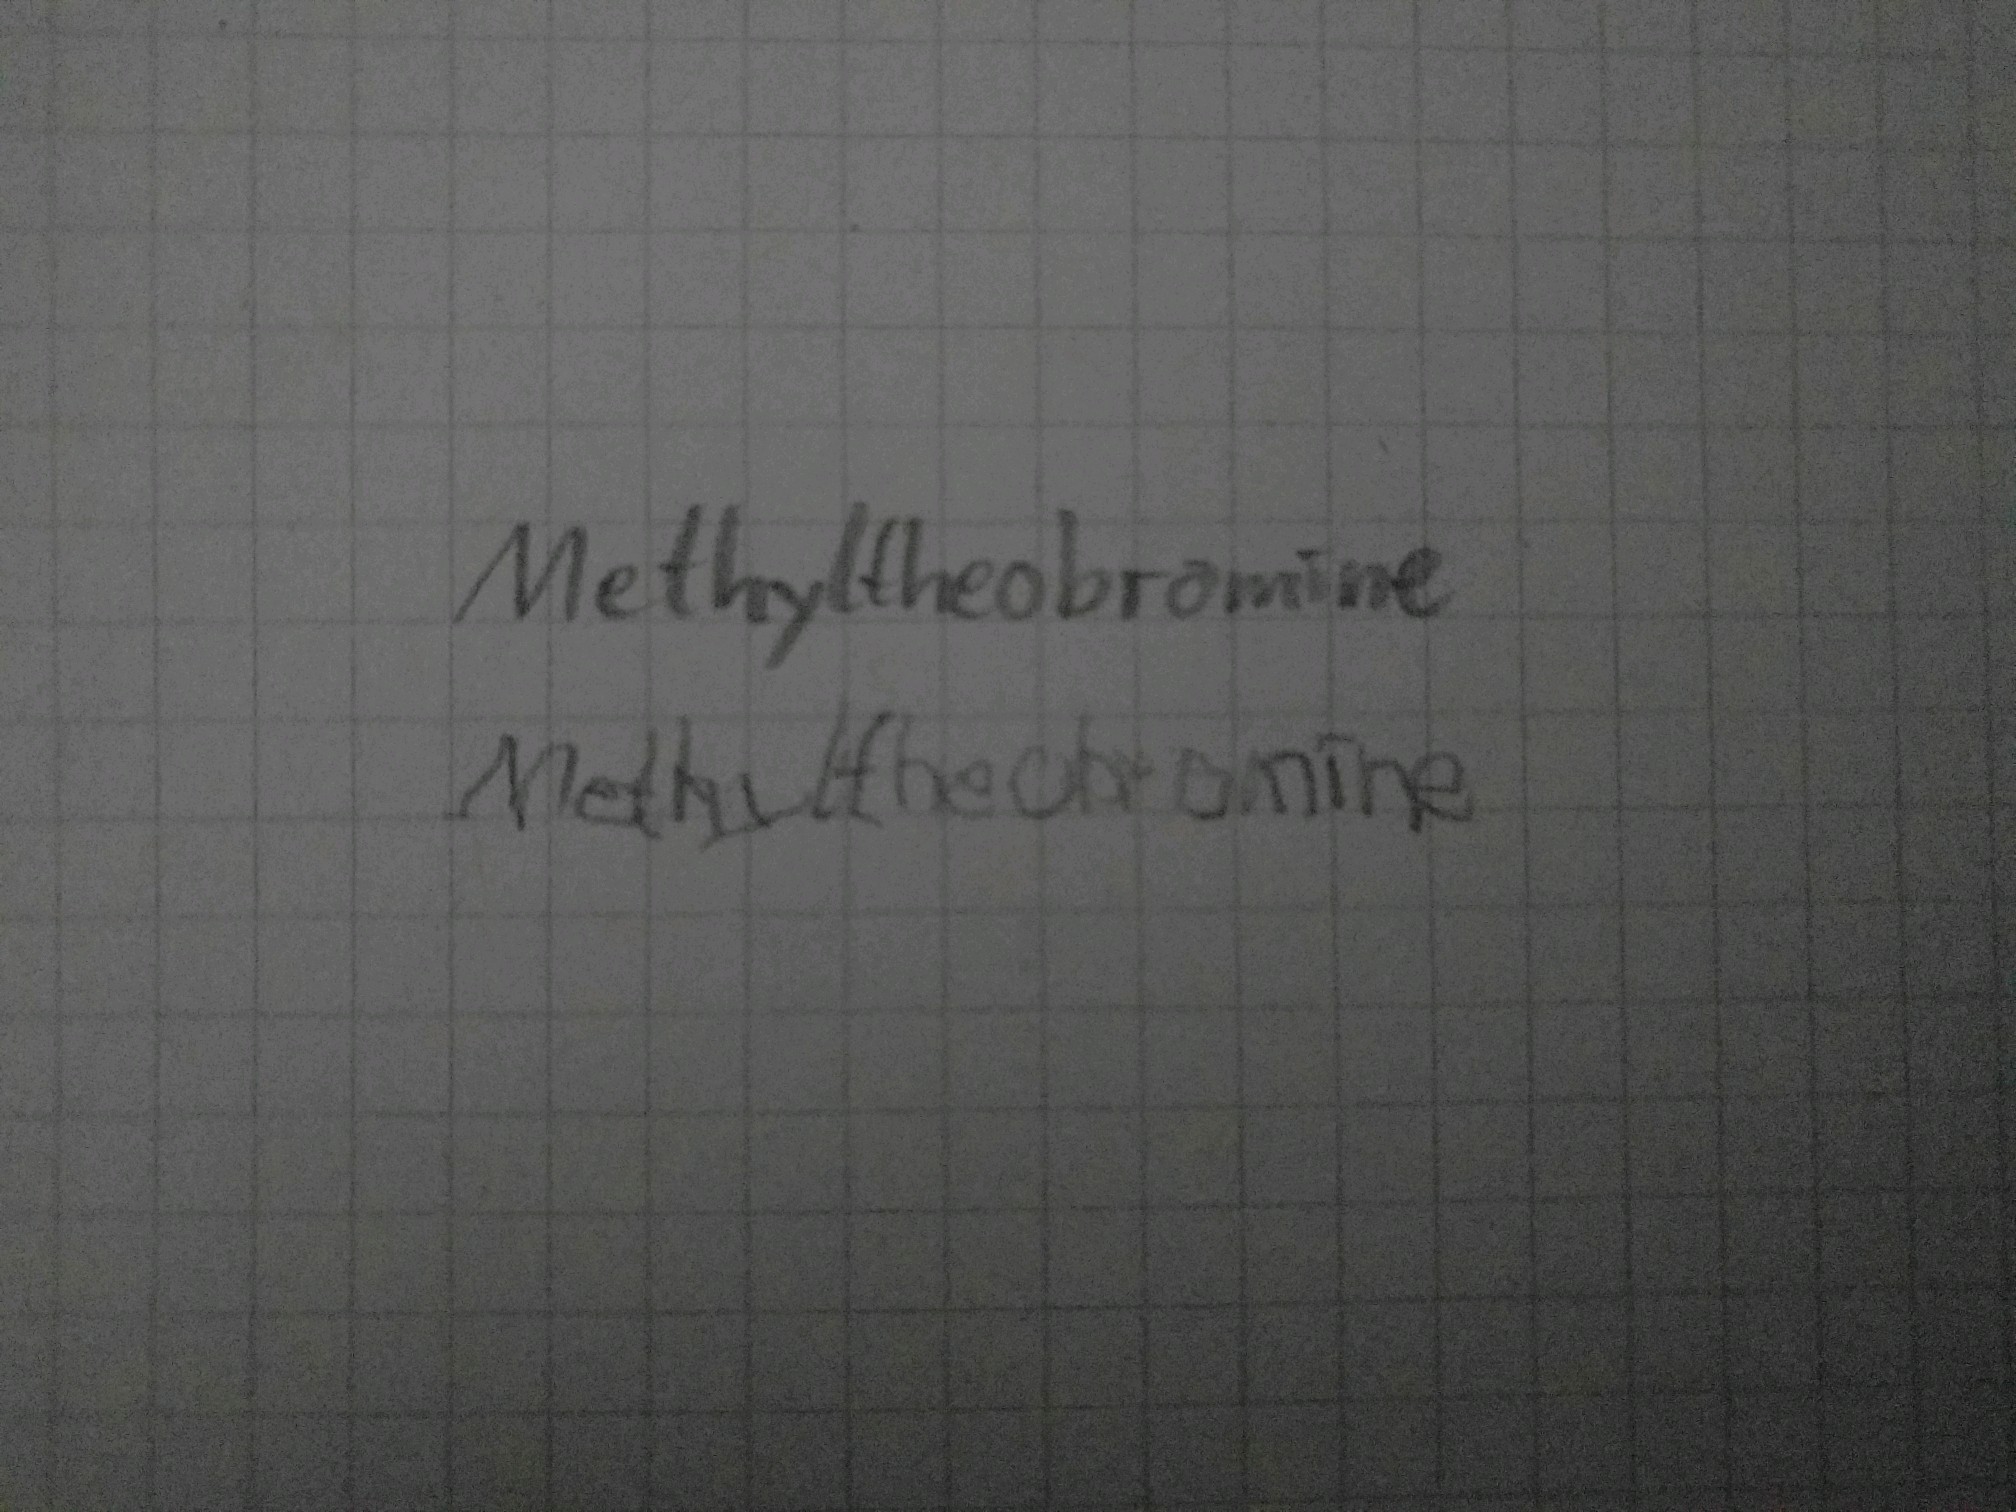 Methyltheobromine
Methyltheobromine